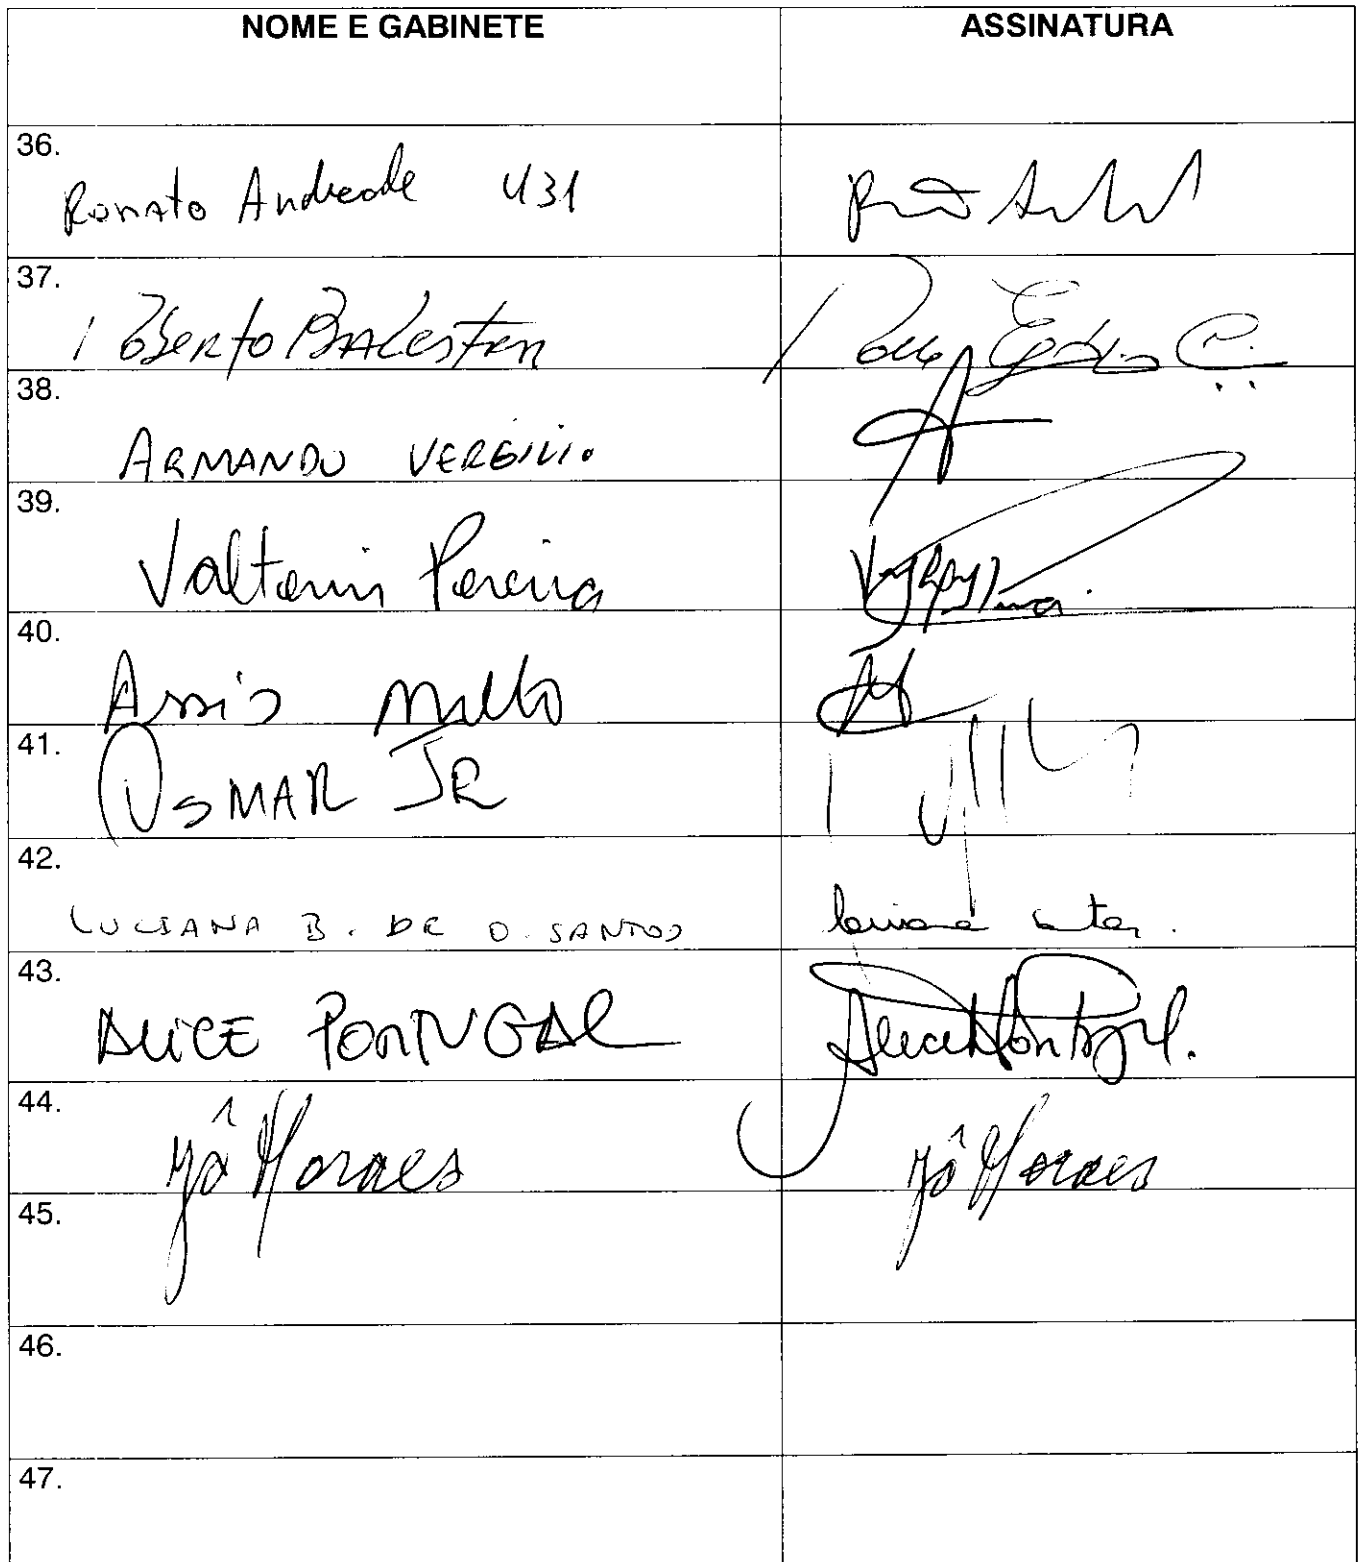 NOME E GABINETE ASSINATURA
36.
Renato Andrade 431
37.
Roberto Balestra
38.
ARMANDO VERGILIO
39.
Valtenir Pereira
40.
Assis Mello
41.
OSMAR JR
42.
LUCIANA B. DE O. SANTOS Luciana Santos.
43.
ALICE PORTUGAL Alice Portugal.
44.
Jô Moraes Jô Moraes
45.
46.
47.